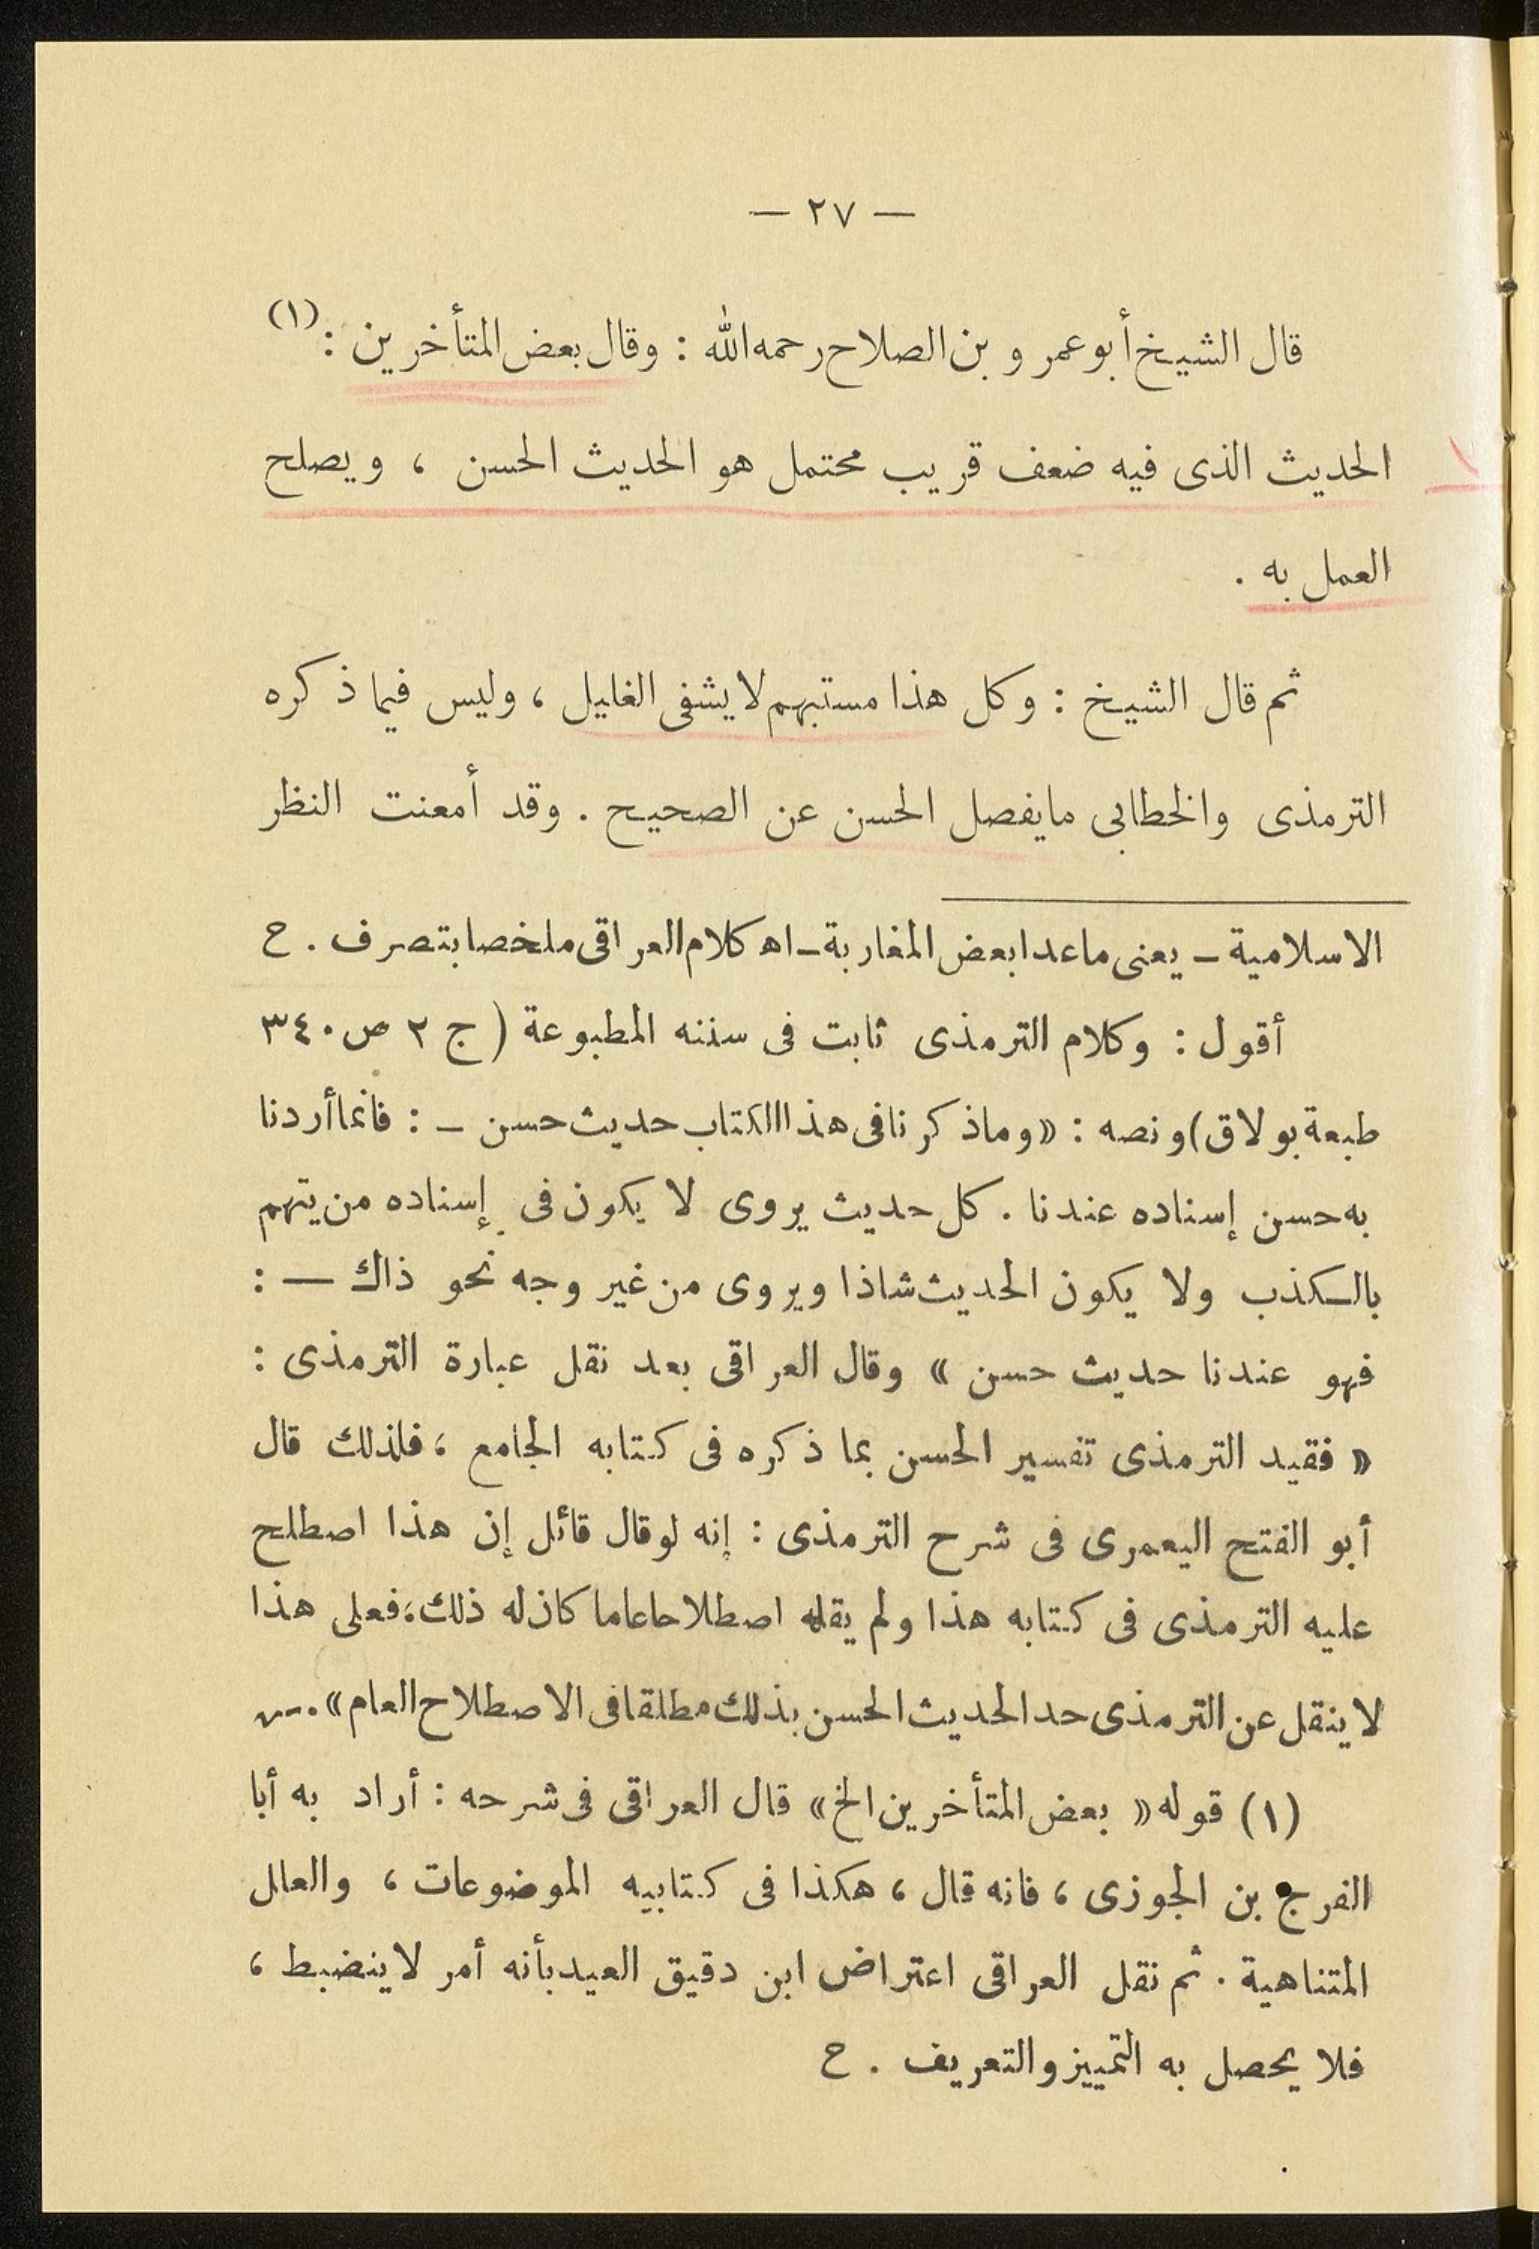 — ٢٧ —
قال الشيخ أبو عمرو بن الصلاح رحمه الله : وقال بعض المتأخرين :(١)
الحديث الذى فيه ضعف قريب محتمل هو الحديث الحسن ، ويصلح
العمل به .
ثم قال الشيخ : وكل هذا مستبهم لا يشفى الغليل ، وليس فيما ذكره
الترمذى والخطابى ما يفصل الحسن عن الصحيح . وقد أمعنت النظر
الاسلامية ـ يعنى ماعدا بعض المغاربة ـ اهـ كلام العراقى ملخصا بتصرف . ح
أقول : وكلام الترمذى ثابت فى سننه المطبوعة ( ج ٢ ص ٣٤٠
طبعة بولاق) ونصه : « وماذكرنا فى هذا الكتاب حديث حسن ـ : فانما أردنا
به حسن إسناده عندنا . كل حديث يروى لا يكون فى إسناده من يتهم
بالكذب ولا يكون الحديث شاذا ويروى من غير وجه نحو ذاك — :
فهو عندنا حديث حسن » وقال العراقى بعد نقل عبارة الترمذى :
« فقيد الترمذى تفسير الحسن بما ذكره فى كتابه الجامع ، فلذلك قال
أبو الفتح اليعمرى فى شرح الترمذى : إنه لو قال قائل إن هذا اصطلح
عليه الترمذى فى كتابه هذا ولم يقله اصطلاحا عاما كان له ذلك ، فعلى هذا
لا ينقل عن الترمذى حد الحديث الحسن بذلك مطلقا فى الاصطلاح العام » .
(١) قوله « بعض المتأخرين الخ » قال العراقى فى شرحه : أراد به أبا
الفرج بن الجوزى ، فانه قال ، هكذا فى كتابيه الموضوعات ، والعلل
المتناهية . ثم نقل العراقى اعتراض ابن دقيق العيد بأنه أمر لا ينضبط ،
فلا يحصل به التمييز والتعريف . ح